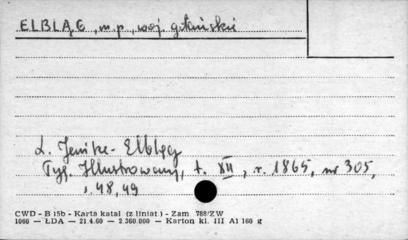 ELBLĄG, m.p., woj. gdański
L. Jenike - Elbląg
Tyg. Illustrowany, t. XII, r. 1865, nr 305,
s. 48, 49
CWD - B 15b - Karta katal (z liniat) - Zam 788/ZW
1066 — ŁDA — 21.4.60 — 2.360.000 — Karton kl. III A1 160 g